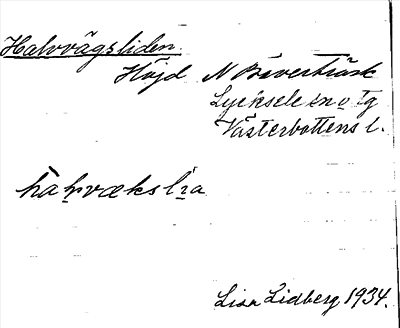 Halvvägsliden.
Höjd N Bäverträsk
Lycksele sn o tg
Västerbottens l.
hahvækslia
Lisa Lidberg 1934.